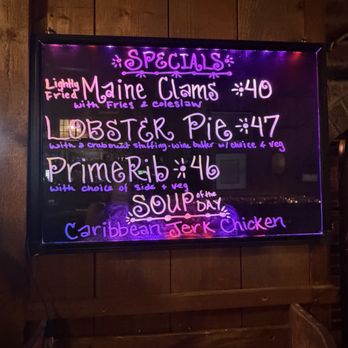 SPECIALS
Lightly Fried Maine Clams 40
with Fries & coleslaw
LOBSTER Pie 47
with a crabmeat stuffing - wine butter w/ choice & veg
Prime Rib 46
with choice of side & veg
SOUP of the DAY
Caribbean Jerk Chicken